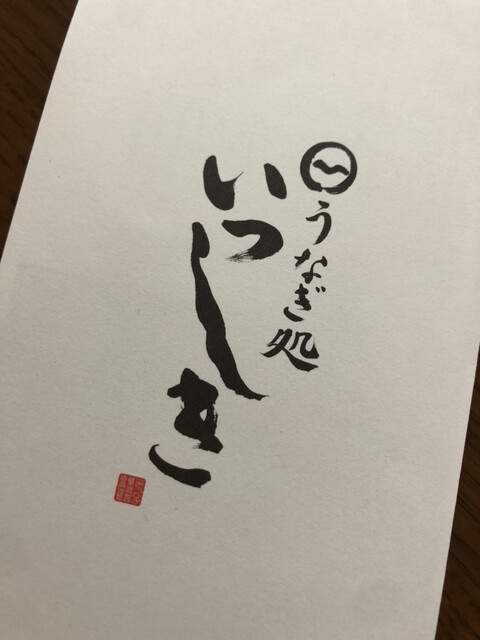 うなぎ処
いっしき